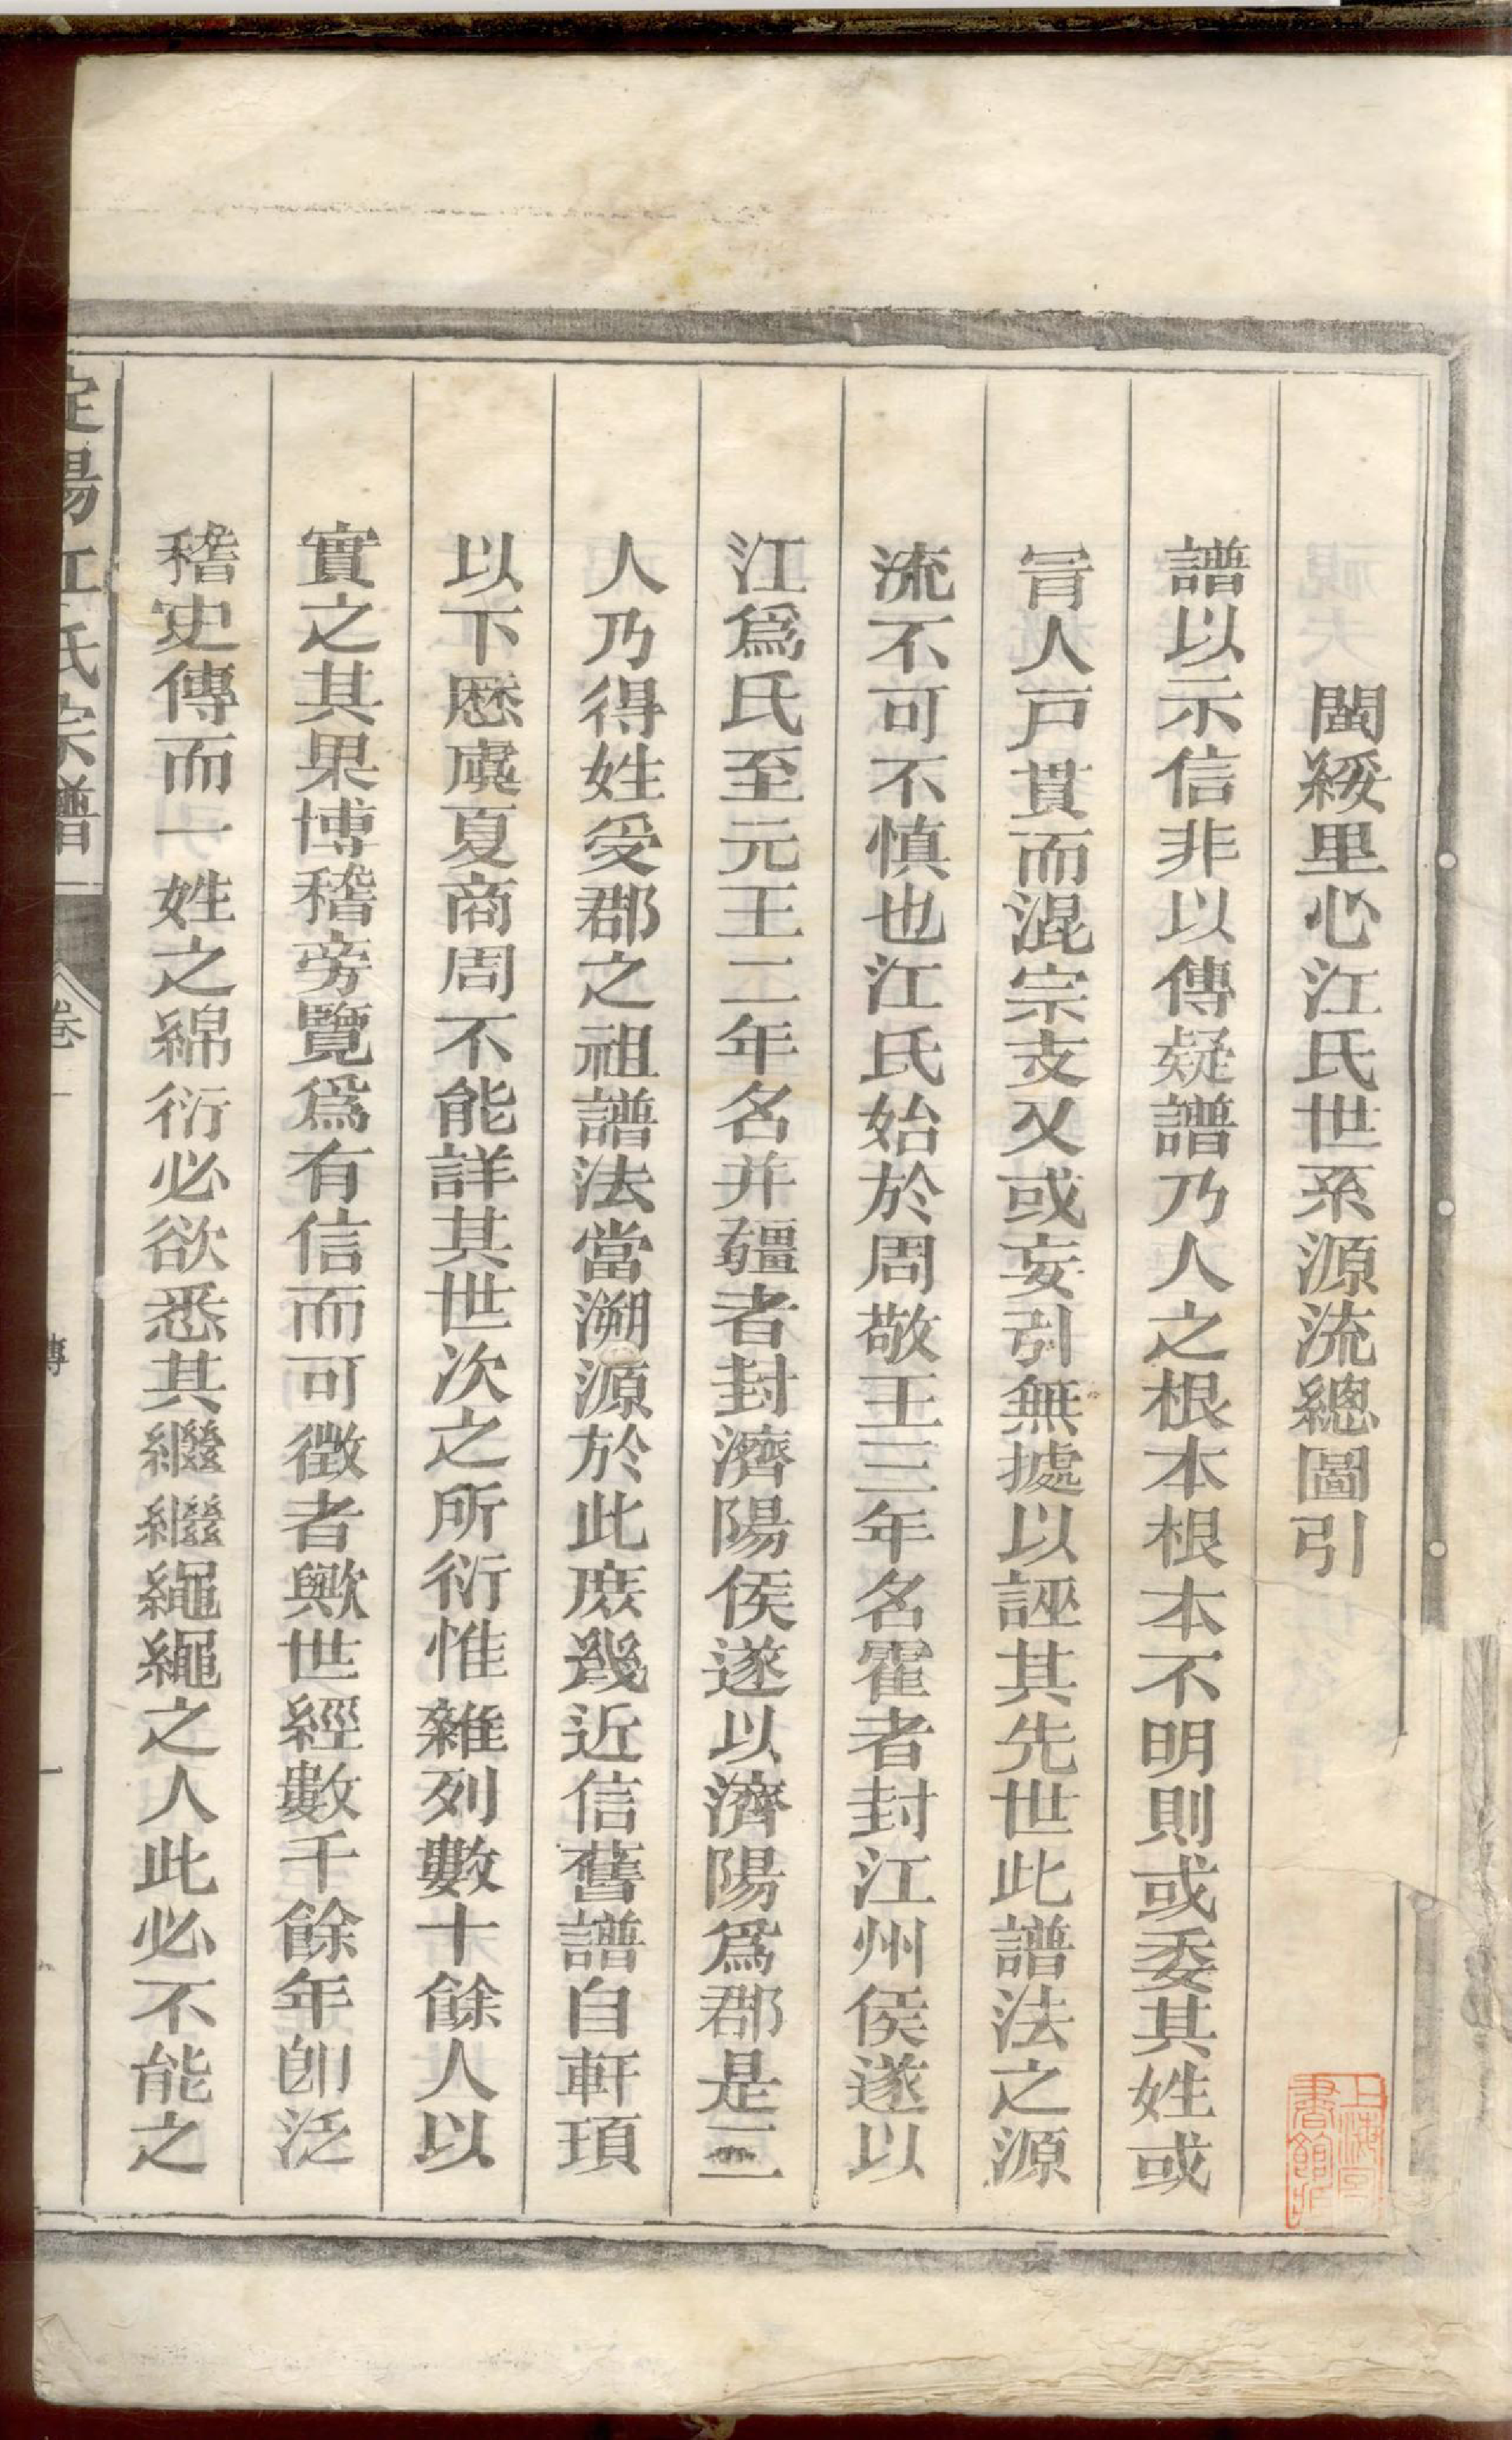 閩綏里心江氏世系源流總圖引
譜以示信非以傳疑譜乃人之根本根本不明則或委其姓或
冐人戸貫而混宗支又或妄引無據以誣其先世此譜法之源
流不可不慎也江氏始於周敬王三年名霍者封江州侯遂以
江爲氏至元王二年名并疆者封濟陽侯遂以濟陽爲郡是二
人乃得姓受郡之祖譜法當溯源於此庶幾近信舊譜自軒頊
以下歷虞夏商周不能詳其世次之所衍惟雜列數十餘人以
實之其果博稽旁覽爲有信而可徵者歟世經數千餘年卽泛
稽史傳而一姓之綿衍必欲悉其繼繼繩繩之人此必不能之
定陽江氏宗譜
卷一
傳
一
上海圖書館印